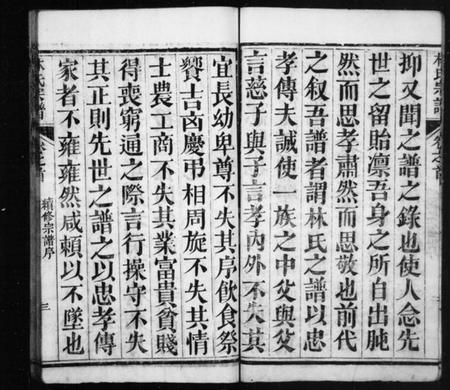 抑又聞之譜之錄也使人念先
世之留貽凛吾身之所自出肫
然而思孝肅然而思敬也前代
之叙吾譜者謂林氏之譜以忠
孝傳夫誠使一族之中父與父
言慈子與子言孝內外不失其
宜長幼卑尊不失其序飲食祭
饗吉凶慶弔相周旋不失其情
士農工商不失其業富貴貧賤
得喪窮通之際言行操守不失
其正則先世之譜之以忠孝傳
家者不雍雍然咸頼以不墜也
林氏宗譜
卷之首
續修宗譜序
三
林氏宗譜
卷之首